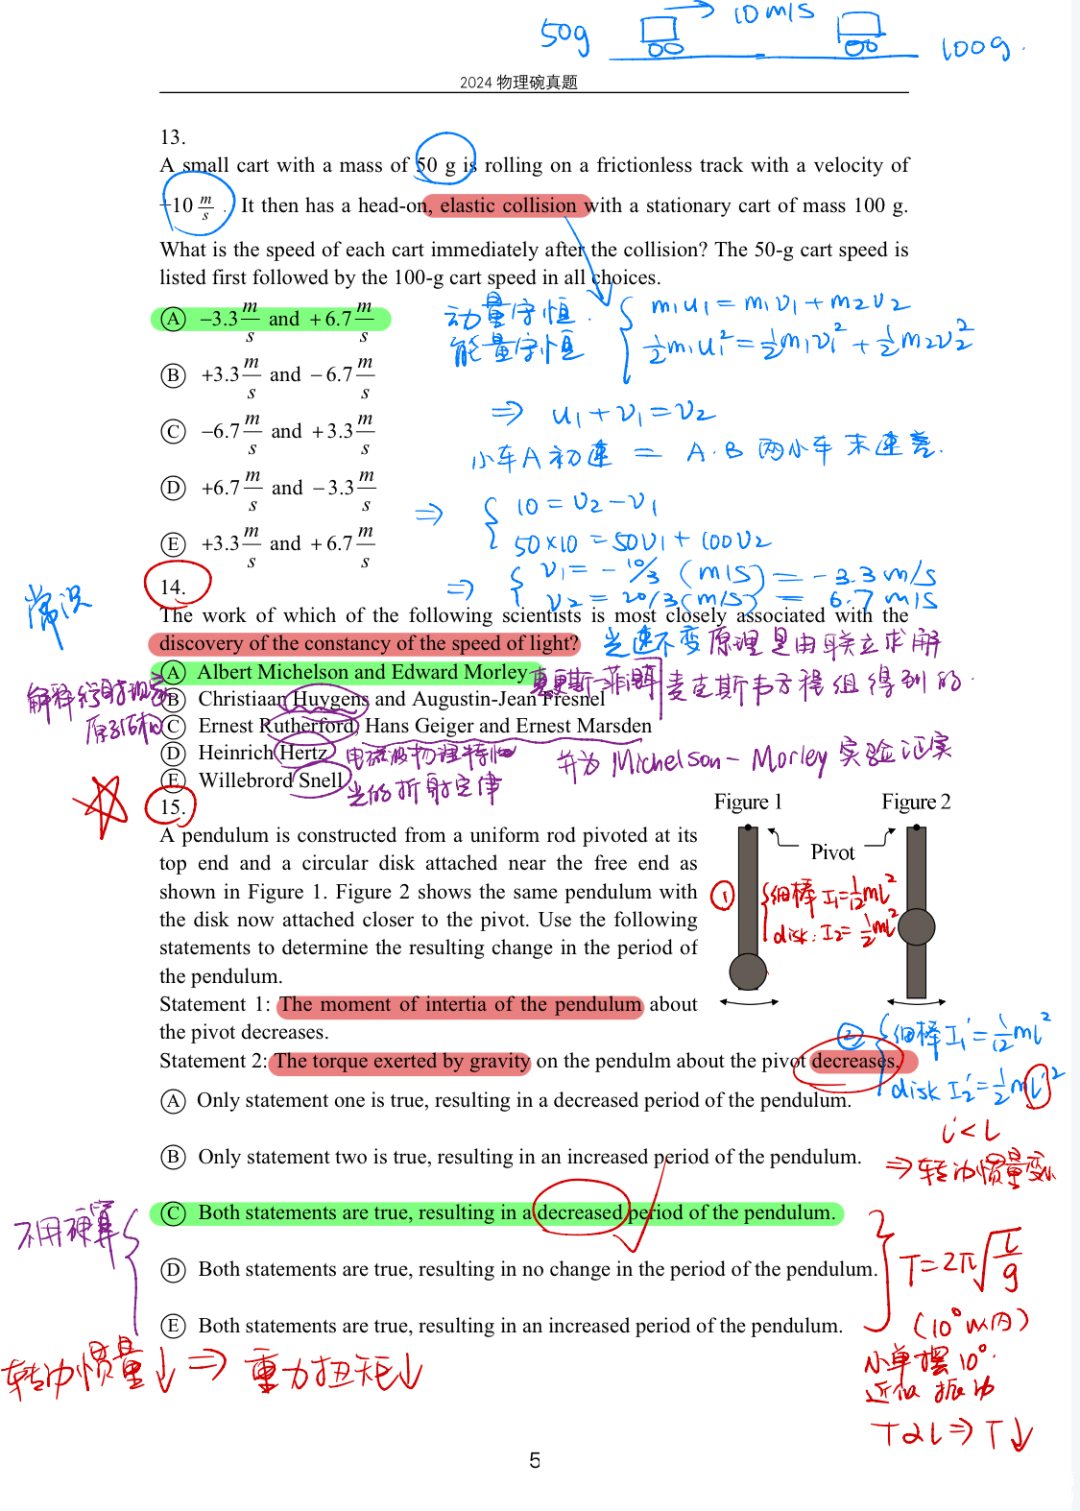 50g
10 m/s
100g.
2024 物理碗真题
13.
A small cart with a mass of 50 g is rolling on a frictionless track with a velocity of
+10 m/s. It then has a head-on, elastic collision with a stationary cart of mass 100 g.
What is the speed of each cart immediately after the collision? The 50-g cart speed is
listed first followed by the 100-g cart speed in all choices.
Ⓐ −3.3 m/s and +6.7 m/s
动量守恒.
m₁u₁ = m₁v₁ + m₂v₂
能量守恒
½m₁u₁² = ½m₁v₁² + ½m₂v₂²
Ⓑ +3.3 m/s and −6.7 m/s
⇒ u₁ + v₁ = v₂
Ⓒ −6.7 m/s and +3.3 m/s
小车A初速 = A.B两小车末速差.
Ⓓ +6.7 m/s and −3.3 m/s
⇒ 10 = v₂ − v₁
50×10 = 50v₁ + 100v₂
Ⓔ +3.3 m/s and +6.7 m/s
⇒ v₁ = −10/3 (m/s) = −3.3 m/s
v₂ = 20/3 (m/s) = 6.7 m/s
14.
常识
The work of which of the following scientists is most closely associated with the
discovery of the constancy of the speed of light?
光速不变原理是由联立求解
Ⓐ Albert Michelson and Edward Morley
惠更斯-菲涅耳
麦克斯韦方程组得到的.
Ⓑ Christiaan Huygens and Augustin-Jean Fresnel
原子结构
Ⓒ Ernest Rutherford, Hans Geiger and Ernest Marsden
Ⓓ Heinrich Hertz
电磁波物理特性
并为 Michelson - Morley 实验证实
Ⓔ Willebrord Snell
光的折射定律
15.
Figure 1
Figure 2
Pivot
A pendulum is constructed from a uniform rod pivoted at its
top end and a circular disk attached near the free end as
shown in Figure 1. Figure 2 shows the same pendulum with
the disk now attached closer to the pivot. Use the following
statements to determine the resulting change in the period of
the pendulum.
① 细棒 I₁ = 1/12 ml²
disk: I₂ = ½ml²
Statement 1: The moment of intertia of the pendulum about
the pivot decreases.
Statement 2: The torque exerted by gravity on the pendulm about the pivot decreases.
② 细棒 I₁' = 1/12 ml²
disk I₂' = ½ml'²
l' < L
⇒ 转动惯量变小
Ⓐ Only statement one is true, resulting in a decreased period of the pendulum.
Ⓑ Only statement two is true, resulting in an increased period of the pendulum.
Ⓒ Both statements are true, resulting in a decreased period of the pendulum.
Ⓓ Both statements are true, resulting in no change in the period of the pendulum.
Ⓔ Both statements are true, resulting in an increased period of the pendulum.
不用硬算
T = 2π√(L/g)
(10° 以内)
小单摆 10°.
近似 振动
T ∝ L ⇒ T↓
转动惯量↓ ⇒ 重力扭矩↓
5